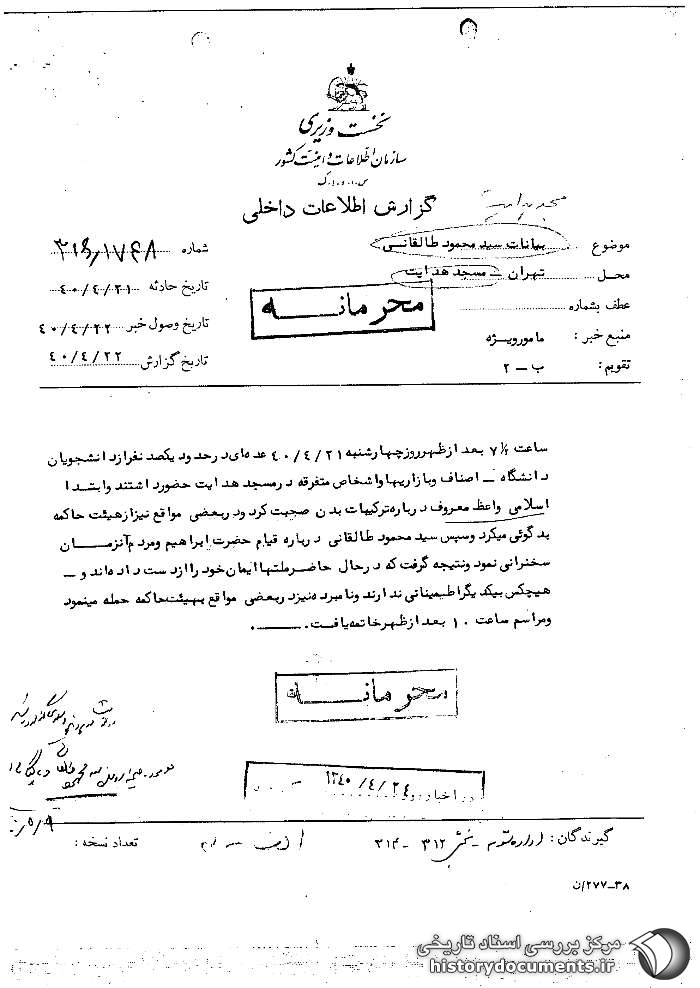 نخست وزیری
سازمان اطلاعات و امنیت کشور
س.ا.و.ا.ک
گزارش اطلاعات داخلی
مسجد هدایت
موضوع بیانات سید محمود طالقانی
شماره ۳۱۶/۱۷۴۸
محل تهران ـ مسجد هدایت
تاریخ حادثه ۴۰/۴/۲۱
محرمانه
عطف بشماره
تاریخ وصول خبر ۴۰/۴/۲۲
منبع خبر : مامور ویژه
تاریخ گزارش ۴۰/۴/۲۲
تقویم : ب ـ ۲
ساعت ۷½ بعد از ظهر روز چهارشنبه ۴۰/۴/۲۱ عده‌ای در حدود یکصد نفر از دانشجویان
دانشگاه ـ اصناف و بازاریها و اشخاص متفرقه در مسجد هدایت حضور داشتند و ابتدا
اسلامی واعظ معروف درباره ترکیبات بدن صحبت کرد و در بعضی مواقع نیز از هیئت حاکمه
بدگوئی میکرد و سپس سید محمود طالقانی درباره قیام حضرت ابراهیم و مردم آنزمان
سخنرانی نمود و نتیجه گرفت که در حال حاضر ملتها ایمان خود را از دست داده‌اند و ـ
هیچکس بیکدیگر اطمینانی ندارند و نامبرده نیز در بعضی مواقع بهیئت حاکمه حمله مینمود
و مراسم ساعت ۱۰ بعد از ظهر خاتمه یافت.
محرمانه
در اخبار روز ۱۳۴۰/۴/۲۴
گیرندگان : اداره سوم ـ بخش ۳۱۲ ـ ۳۱۴
الف
تعداد نسخه :
۳۸-۲۷۷/ن
مرکز بررسی اسناد تاریخی
historydocuments.ir